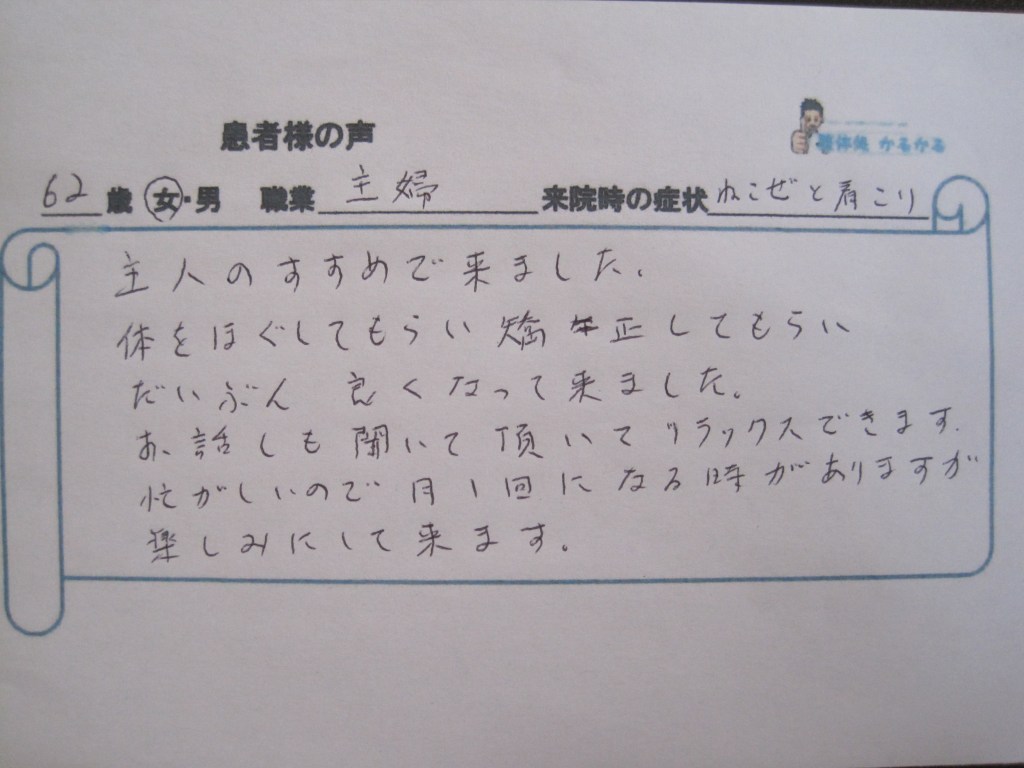 患者様の声
整体処 かるかる
62歳 女・男 職業 主婦 来院時の症状 ねこぜと肩こり
主人のすすめで来ました。
体をほぐしてもらい 矯正してもらい
だいぶん 良くなって来ました。
お話しも聞いて頂いてリラックスできます.
忙がしいので月1回になる時がありますが
楽しみにして来ます。